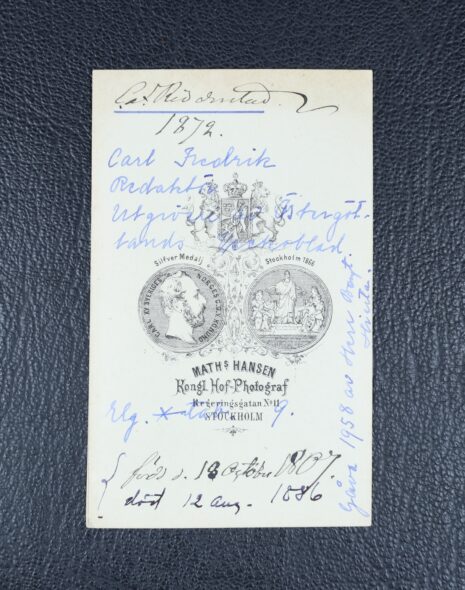 C. F. Ridderstad.
1872.
Carl Fredrik
Redaktör
Utgivare av Östergöt-
lands
Silfver Medalj Stockholm 1866
CARL XV SVERIGES NORGES G. O. V. KONUNG
MATHS HANSEN
Kongl. Hof-Photograf
Regeringsgatan No 11
STOCKHOLM
Elg. 9.
född d. 18 Octobr 1807.
död 12 aug. 1886
Gåva 1958 av Herr Bengt